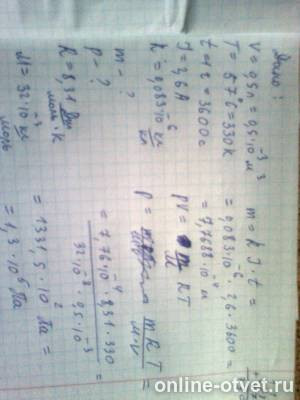 Дано:
V = 0,5л = 0,5·10⁻³ м³
T = 57°C = 330 K
t = 1 ч = 3600 с
J = 2,6 A
k = 0,083·10⁻⁶ кг/
m - ?
P - ?
R = 8,31 Дж/моль·K
M = 32·10⁻³ кг/моль
m = k J · t =
= 0,083·10⁻⁶ · 2,6 · 3600 =
= 7,7688·10⁻⁴ кг
PV = m/M RT
P = mRT/M·V =
= 7,76·10⁻⁴ · 8,31 · 330 / 32·10⁻³ · 0,5·10⁻³ =
= 1331,5 · 10² Па =
= 1,3 · 10⁵ Па
online-otvet.ru